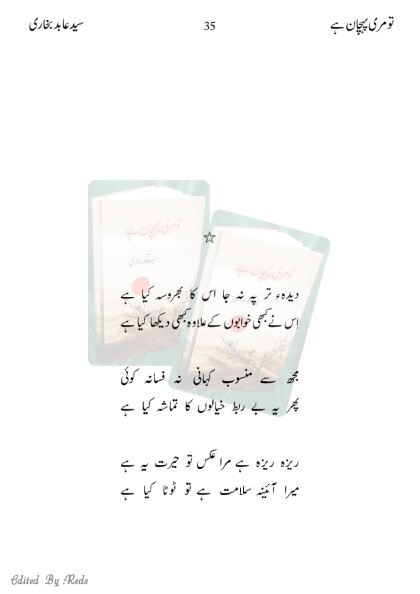 تو مری پہچان ہے
35
سید عابد بخاری
دیدہء تر پہ نہ جا اس کا بھروسہ کیا ہے
اِس نے کبھی خوابوں کے علاوہ کبھی دیکھا کیا ہے
مجھ سے منسوب کہانی نہ فسانہ کوئی
پھر یہ بے ربط خیالوں کا تماشہ کیا ہے
ریزہ ریزہ ہے مرا عکس تو حیرت یہ ہے
میرا آئینہ سلامت ہے تو ٹوٹا کیا ہے
Edited By :Reds